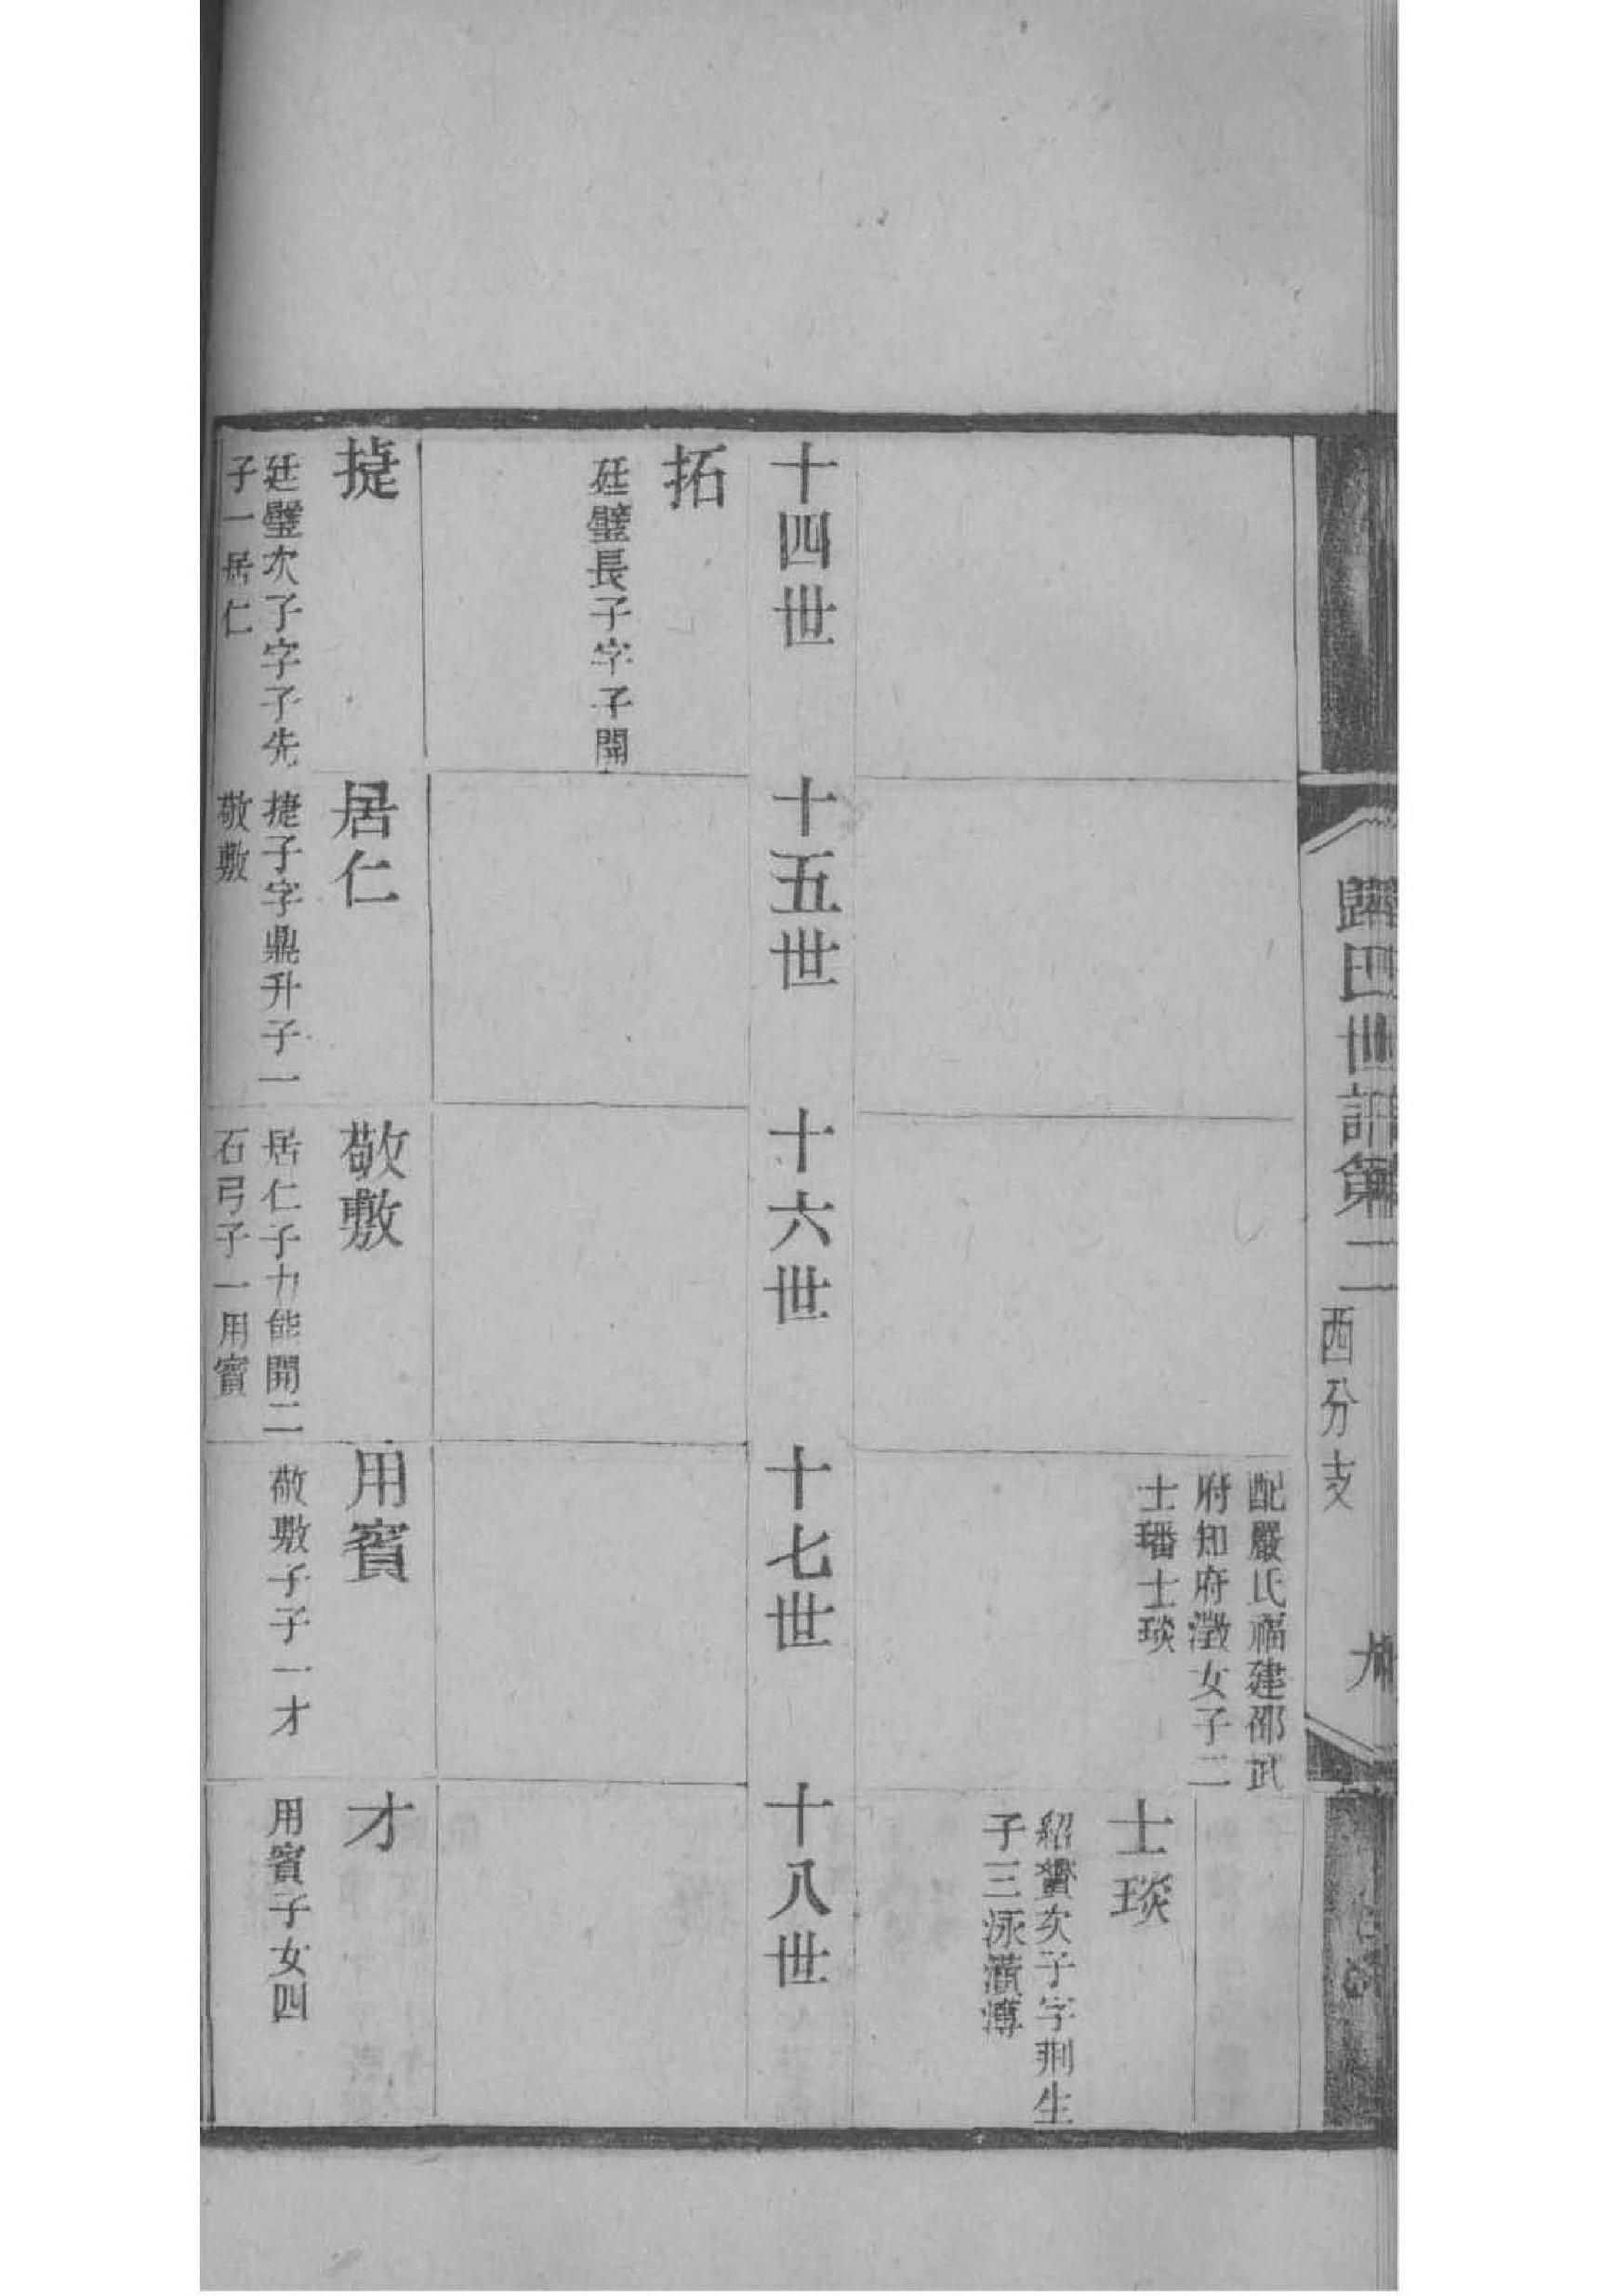 世
第二
西分支
配嚴氏福建邵武
府知府瀓女子二
士璠士琰
士琰
紹黌次子字荆生
子三泳瀇溥
十四世
十五世
十六世
十七世
十八世
拓
廷璧長子字子開
捷
廷璧次子字子先
子一居仁
居仁
捷子字鼎升子一
敬敷
敬敷
居仁子力能開二
石弓子一用賓
用賓
敬敷子子一才
才
用賓子女四